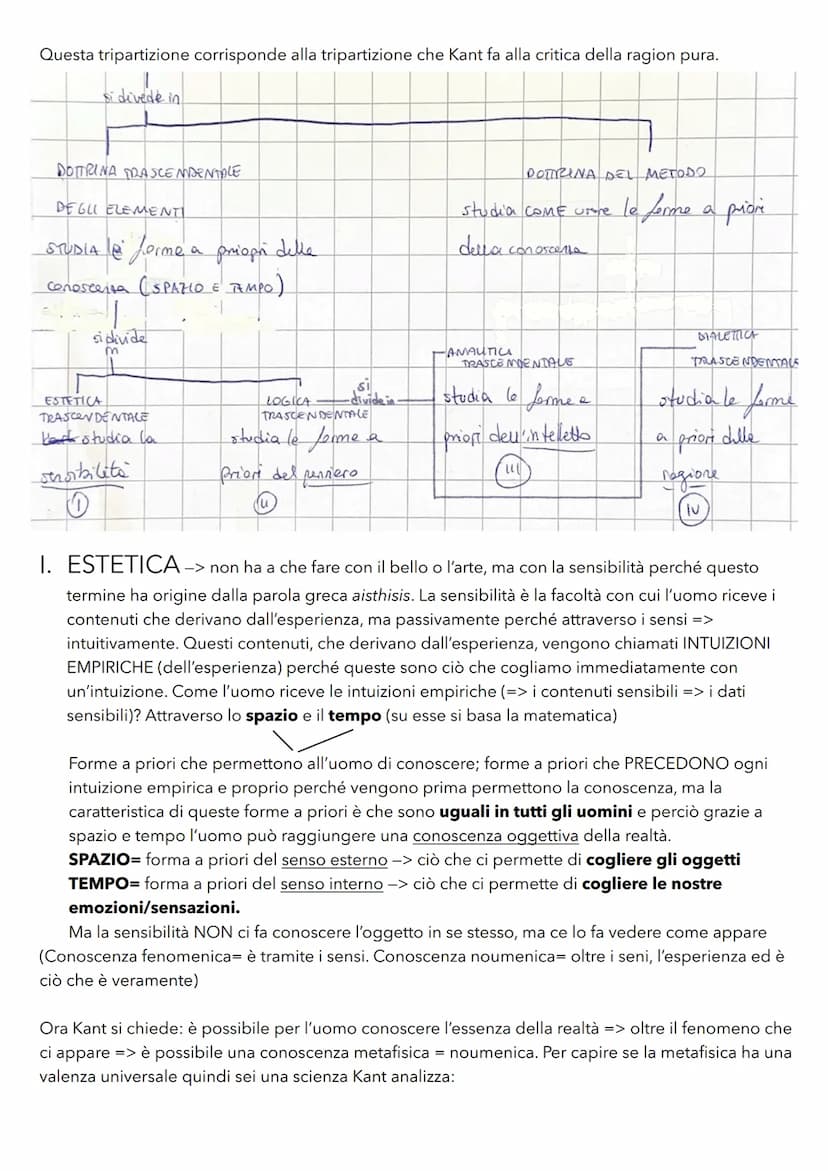 Questa tripartizione corrisponde alla tripartizione che Kant fa alla critica della ragion pura.
si divede in
DOTTRINA TRASCENDENTALE
DEGLI ELEMENTI
STUDIA le forme a priopri della
conoscenza (SPAZIO E TEMPO)
DOTTRINA DEL METODO
studia COME usare le forme a priori
della conoscenza
si divide
in
ESTETICA
TRASCENDENTALE
studia la
sensibilità
I
LOGICA
TRASCENDENTALE
studia le forme a
priori del pensiero
II
si
divide in
ANALITICA
TRASCENDENTALE
studia le forme a
priori dell'intelletto
III
DIALETTICA
TRASCENDENTALE
studia le forme
a priori della
ragione
IV
I. ESTETICA –> non ha a che fare con il bello o l'arte, ma con la sensibilità perché questo
termine ha origine dalla parola greca aisthisis. La sensibilità è la facoltà con cui l'uomo riceve i
contenuti che derivano dall'esperienza, ma passivamente perché attraverso i sensi =>
intuitivamente. Questi contenuti, che derivano dall'esperienza, vengono chiamati INTUIZIONI
EMPIRICHE (dell'esperienza) perché queste sono ciò che cogliamo immediatamente con
un'intuizione. Come l'uomo riceve le intuizioni empiriche (=> i contenuti sensibili => i dati
sensibili)? Attraverso lo spazio e il tempo (su esse si basa la matematica)
Forme a priori che permettono all'uomo di conoscere; forme a priori che PRECEDONO ogni
intuizione empirica e proprio perché vengono prima permettono la conoscenza, ma la
caratteristica di queste forme a priori è che sono uguali in tutti gli uomini e perciò grazie a
spazio e tempo l'uomo può raggiungere una conoscenza oggettiva della realtà.
SPAZIO= forma a priori del senso esterno –> ciò che ci permette di cogliere gli oggetti
TEMPO= forma a priori del senso interno –> ciò che ci permette di cogliere le nostre
emozioni/sensazioni.
Ma la sensibilità NON ci fa conoscere l'oggetto in se stesso, ma ce lo fa vedere come appare
(Conoscenza fenomenica= è tramite i sensi. Conoscenza noumenica= oltre i seni, l'esperienza ed è
ciò che è veramente)
Ora Kant si chiede: è possibile per l'uomo conoscere l'essenza della realtà => oltre il fenomeno che
ci appare => è possibile una conoscenza metafisica = noumenica. Per capire se la metafisica ha una
valenza universale quindi sei una scienza Kant analizza: